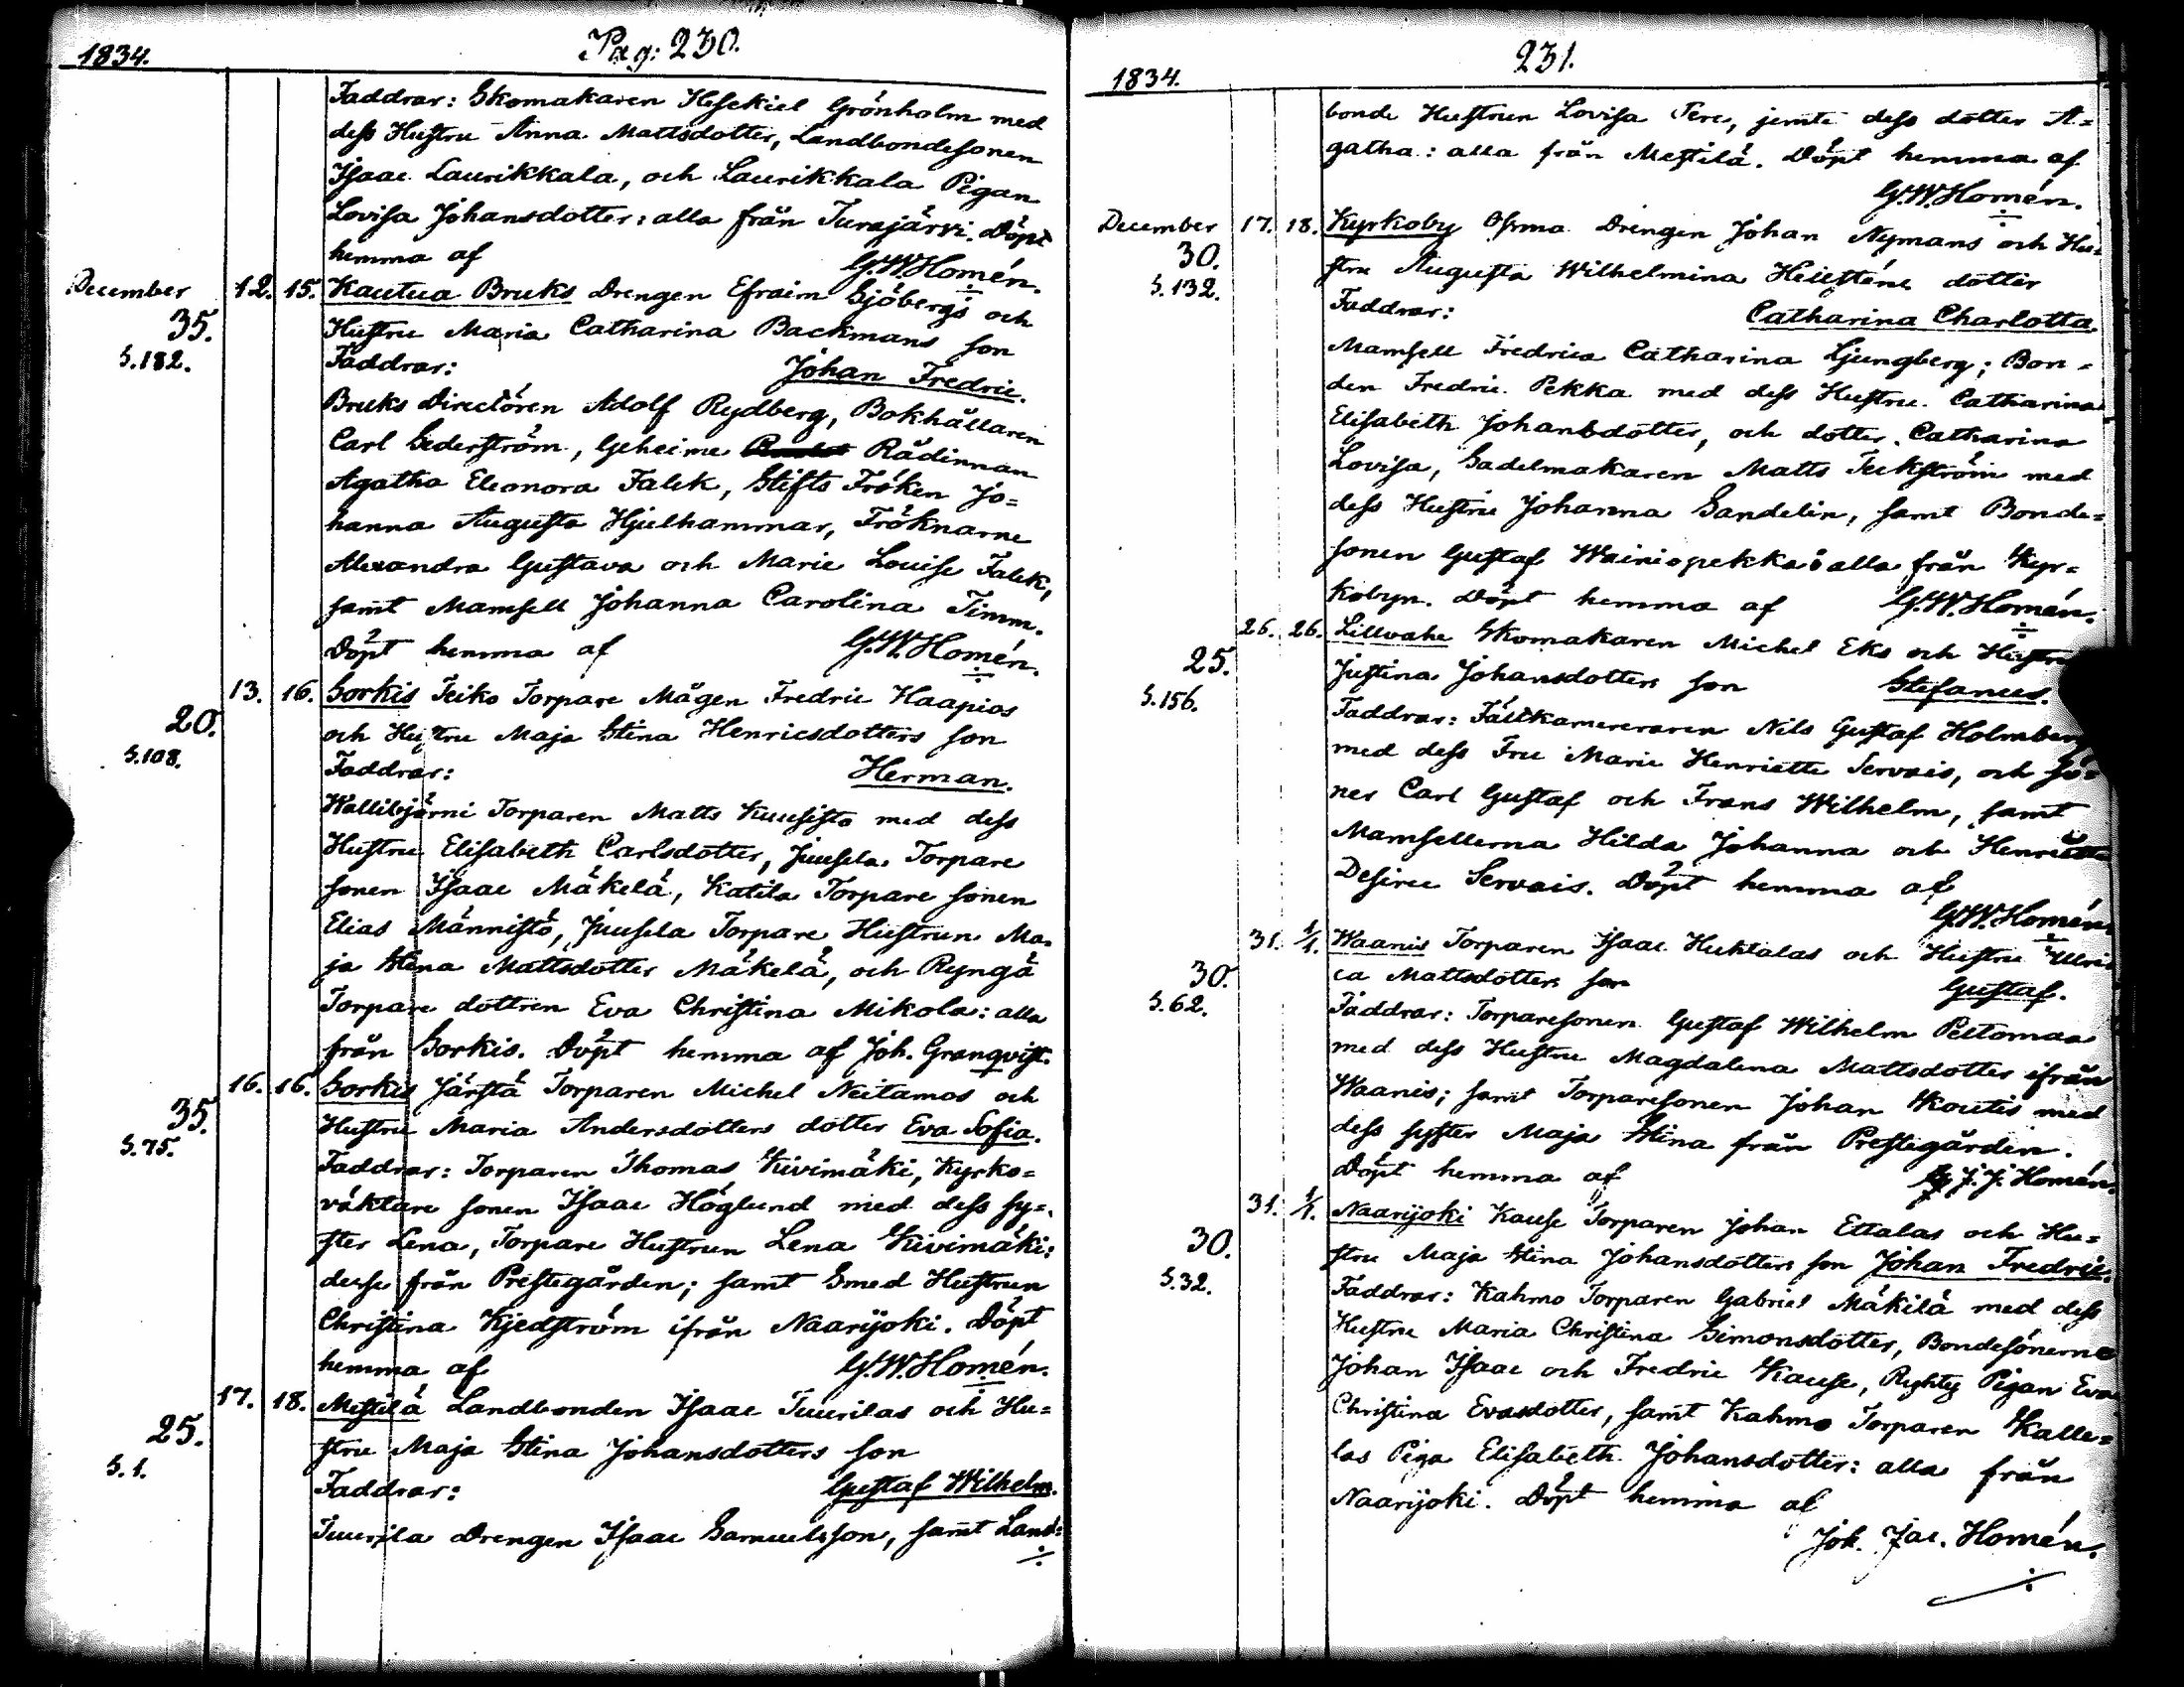 1834.
Pag: 230.
Faddrar: Skomakaren Hesekiel Grönholm med
dess Hustru Anna Mattsdotter, Landbondesonen
Isaac Laurikkala, och Laurikkala Pigan
Lovisa Johansdotter: alla från Turajärvi. Döpt
hemma af G.W. Homén.
December 12. 15. Kautua Bruks Drengen Efraim Sjöbergs och
35. Hustru Maria Catharina Backmans son
S.182. Faddrar: Johan Fredric.
Bruks Directören Adolf Rydberg, Bokhållaren
Carl Sederström, Geheime Rådinnan
Agatha Eleonora Falck, Stifts Fröken Jo=
hanna Augusta Hjelhammar, Fröknarne
Alexandra Gustava och Marie Louise Falck,
samt Mamsell Johanna Carolina Timm.
Döpt hemma af G.W. Homén.
13. 16. Sorkis Teiko Torpare Mågen Fredric Haapios
20. och Hustru Maja Stina Henricsdotters son
S.108. Faddrar: Herman.
Torparen Matts Kuusisto med dess
Hustru Elisabeth Carlsdotter, Juusela Torpare
sonen Isaac Mäkelä, Katila Torpare sonen
Elias Männistö, Juusela Torpare Hustrun Ma=
ja Stina Mattsdotter Mäkelä, och Ryngä
Torpare dottren Eva Christina Mikola: alla
från Sorkis. Döpt hemma af Joh. Granqvist.
16. 16. Sorkis Järstä Torparen Michel Neitamos och
35. Hustru Maria Andersdotters dotter Eva Sofia.
S.75. Faddrar: Torparen Thomas Kivimäki, Kyrko=
väktare sonen Isaac Höglund med dess sy=
ster Lena, Torpare Hustrun Lena Kivimäki:
desse från Prestegården; samt Smed Hustrun
Christina Kjedström ifrån Naarijoki. Döpt
hemma af G.W. Homén.
17. 18. Mestilä Landbonden Isaac Tuurilas och Hu=
25. stru Maja Stina Johansdotters son
S.1. Faddrar: Gustaf Wilhelm.
Tuurila Drengen Isaac Samuelsson, samt Land=
÷
1834.
231.
bonde Hustrun Lovisa Pere, jemte dess dotter A=
gatha: alla från Mestilä. Döpt hemma af
G.W. Homén.
December 17. 18. Kyrkoby Drengen Johan Nymans och Hu=
30. stru Augusta Wilhelmina Hellsténs dotter
S.132. Faddrar: Catharina Charlotta.
Mamsell Fredrica Catharina Ljungberg; Bon=
den Fredric Pekka med dess Hustru Catharina
Elisabeth Johansdotter, och dotter Catharina
Lovisa, Sadelmakaren Matts Teckström med
dess Hustru Johanna Sandelin, samt Bonde=
sonen Gustaf Wainiopekka: alla från Kyr=
kobyn. Döpt hemma af G.W. Homén.
26. 26. Lillvahe Skomakaren Michel Eks och Hustru
25. Justina Johansdotters son Stefanus.
S.156. Faddrar: Fältkamereraren Nils Gustaf Holmberg
med dess Fru Marie Henriette Servais, och sö=
ner Carl Gustaf och Frans Wilhelm, samt
Mamsellerna Hilda Johanna och Henriette
Desiree Servais. Döpt hemma af
G.W. Homén.
31. 1/1. Waanis Torparen Isaac Huktalas och Hustru Ulri=
30. ca Mattsdotters son Gustaf.
S.62. Faddrar: Torparesonen Gustaf Wilhelm Peltomaa
med dess Hustru Magdalena Mattsdotter ifrån
Waanis; samt Torparesonen Johan Koutis med
dess syster Maja Stina från Prestegården.
Döpt hemma af J.J. Homén.
31. 1/1. Naarijoki Kause Torparen Johan Ettalas och Hu=
30. stru Maja Stina Johansdotters son Johan Fredric.
S.32. Faddrar: Kahmo Torparen Gabriel Mäkilä med dess
Hustru Maria Christina Simonsdotter, Bondesönerne
Johan Isaac och Fredric Kause, Pigan Eva
Christina Evasdotter, samt Kahmo Torparen Kalle=
las Piga Elisabeth Johansdotter: alla från
Naarijoki. Döpt hemma af
Joh. Jac. Homén.
÷